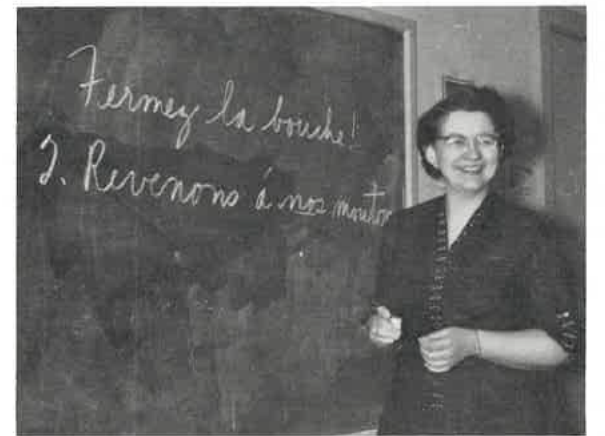 Fermez la bouche!
2. Revenons á nos mouton